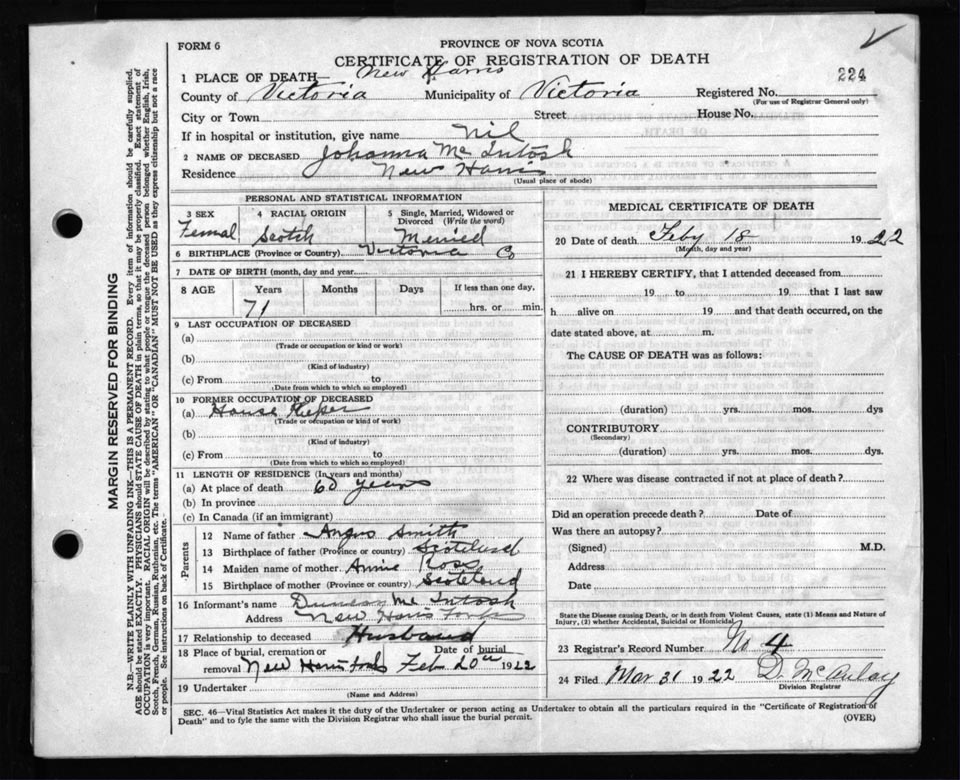 FORM 6
PROVINCE OF NOVA SCOTIA
CERTIFICATE OF REGISTRATION OF DEATH
224
1 PLACE OF DEATH— New Harris
County of Victoria Municipality of Victoria Registered No.
(For use of Registrar General only)
City or Town Street House No.
If in hospital or institution, give name Nil
2 NAME OF DECEASED Johanna Mc Intosh
Residence New Harris
(Usual place of abode)
PERSONAL AND STATISTICAL INFORMATION
3 SEX 4 RACIAL ORIGIN 5 Single, Married, Widowed or Divorced (Write the word)
Femal Scotch Merried
6 BIRTHPLACE (Province or Country) Victoria Co
7 DATE OF BIRTH (month, day and year)
8 AGE Years Months Days If less than one day,
71 hrs. or min.
9 LAST OCCUPATION OF DECEASED
(a)
(Trade or occupation or kind or work)
(b)
(Kind of industry)
(c) From to
(Date from which to which so employed)
10 FORMER OCCUPATION OF DECEASED
(a) House Keeper
(Trade or occupation or kind of work)
(b)
(Kind of industry)
(c) From to
(Date from which to which so employed)
11 LENGTH OF RESIDENCE (In years and months)
(a) At place of death 60 years
(b) In province
(c) In Canada (if an immigrant)
Parents
12 Name of father Angus Smith
13 Birthplace of father (Province or country) Scotland
14 Maiden name of mother Annie Ross
15 Birthplace of mother (Province or country) Scotland
16 Informant's name Duncan Mc Intosh
Address New Harris Forks
17 Relationship to deceased Husband
18 Place of burial, cremation or Date of burial
removal New Harris Forks Feb 20th 1922
19 Undertaker
(Name and Address)
MEDICAL CERTIFICATE OF DEATH
20 Date of death Feby 18 1922
(Month, day and year)
21 I HEREBY CERTIFY, that I attended deceased from
19 to 19 that I last saw
h alive on 19 and that death occurred, on the
date stated above, at m.
The CAUSE OF DEATH was as follows:
(duration) yrs. mos. dys
CONTRIBUTORY
(Secondary)
(duration) yrs. mos. dys.
22 Where was disease contracted if not at place of death?
Did an operation precede death? Date of
Was there an autopsy?
(Signed) M.D.
Address
Date
State the Disease causing Death, or in death from Violent Causes, state (1) Means and Nature of
Injury, (2) whether Accidental, Suicidal or Homicidal.
23 Registrar's Record Number No 4
24 Filed Mar 31 1922 D. McAulay
Division Registrar
SEC. 46—Vital Statistics Act makes it the duty of the Undertaker or person acting as Undertaker to obtain all the particulars required in the "Certificate of Registration of
Death" and to fyle the same with the Division Registrar who shall issue the burial permit.
(OVER)
MARGIN RESERVED FOR BINDING
N.B.—WRITE PLAINLY WITH UNFADING INK—THIS IS A PERMANENT RECORD. Every item of information should be carefully supplied.
AGE should be stated EXACTLY. PHYSICIANS should STATE CAUSE OF DEATH in plain terms, so that it may be properly classified. Exact statement of
OCCUPATION is very important. RACIAL ORIGIN will be described by stating to what people or tongue the deceased person belonged whether English, Irish,
Scotch, French, German, Russian, Ruthenian, etc. The terms "AMERICAN" OR "CANADIAN" MUST NOT BE USED as they express citizenship but not a race
or people. See instructions on back of Certificate.